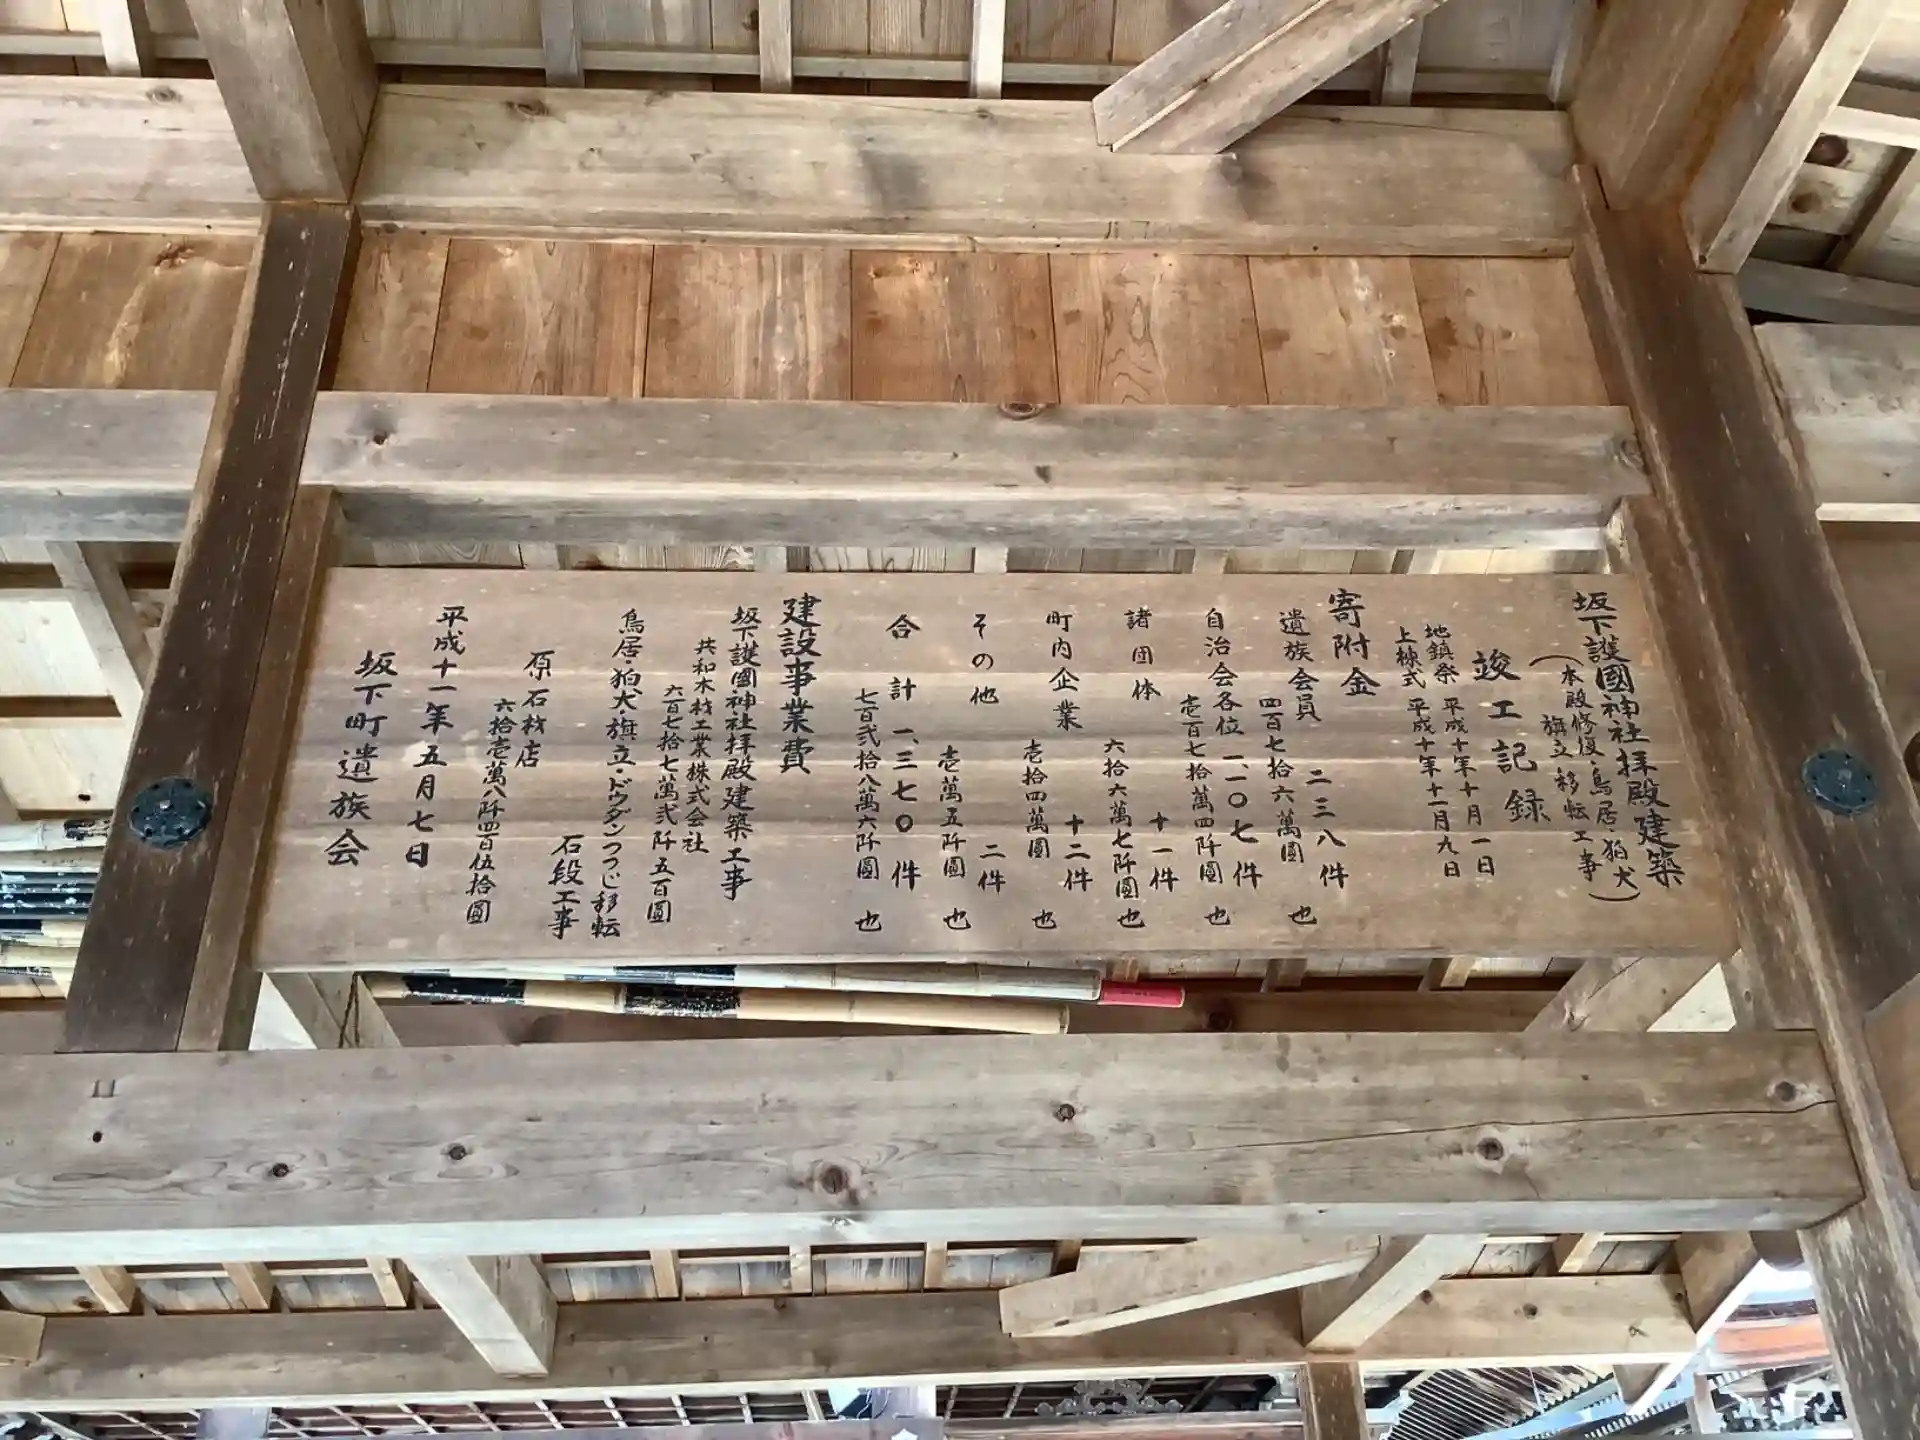 坂下護國神社拝殿建築
（本殿修復・鳥居・狛犬）
旗立移転工事
竣工記録
地鎮祭 平成十年十月一日
上棟式 平成十年十一月九日
寄附金
遺族会員 二三八件
四百七拾六萬圓也
自治会各位 一、一〇七件
壱百七拾萬四阡圓也
諸団体 十一件
六拾六萬七阡圓也
町内企業 十二件
壱拾四萬圓也
その他 二件
壱萬五阡圓也
合計 一、三七〇件
七百弐拾八萬六阡圓也
建設事業費
坂下護國神社拝殿建築工事
共和木材工業株式会社
六百七拾七萬弐阡五百圓
鳥居・狛犬・旗立・ドウダンつつじ移転
石段工事
原石材店
六拾壱萬八阡四百伍拾圓
平成十一年五月七日
坂下町遺族会